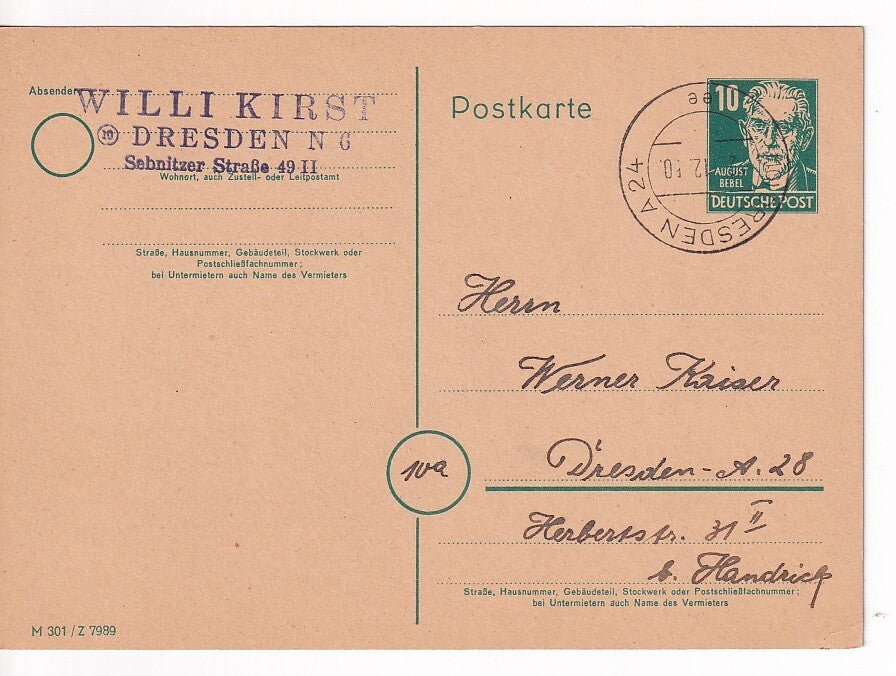 Absender
WILLI KIRST
10 DRESDEN N 6
Sebnitzer Straße 49 II
Wohnort, auch Zustell- oder Leitpostamt
Straße, Hausnummer, Gebäudeteil, Stockwerk oder
Postschließfachnummer;
bei Untermietern auch Name des Vermieters
M 301 / Z 7989
Postkarte
10
AUGUST
BEBEL
DEUTSCHE POST
DRESDEN A 24
12. 50.
Herrn
Werner Kaiser
10a
Dresden-A. 28
Herbertstr. 31 II
b. Handrick
Straße, Hausnummer, Gebäudeteil, Stockwerk oder Postschließfachnummer;
bei Untermietern auch Name des Vermieters